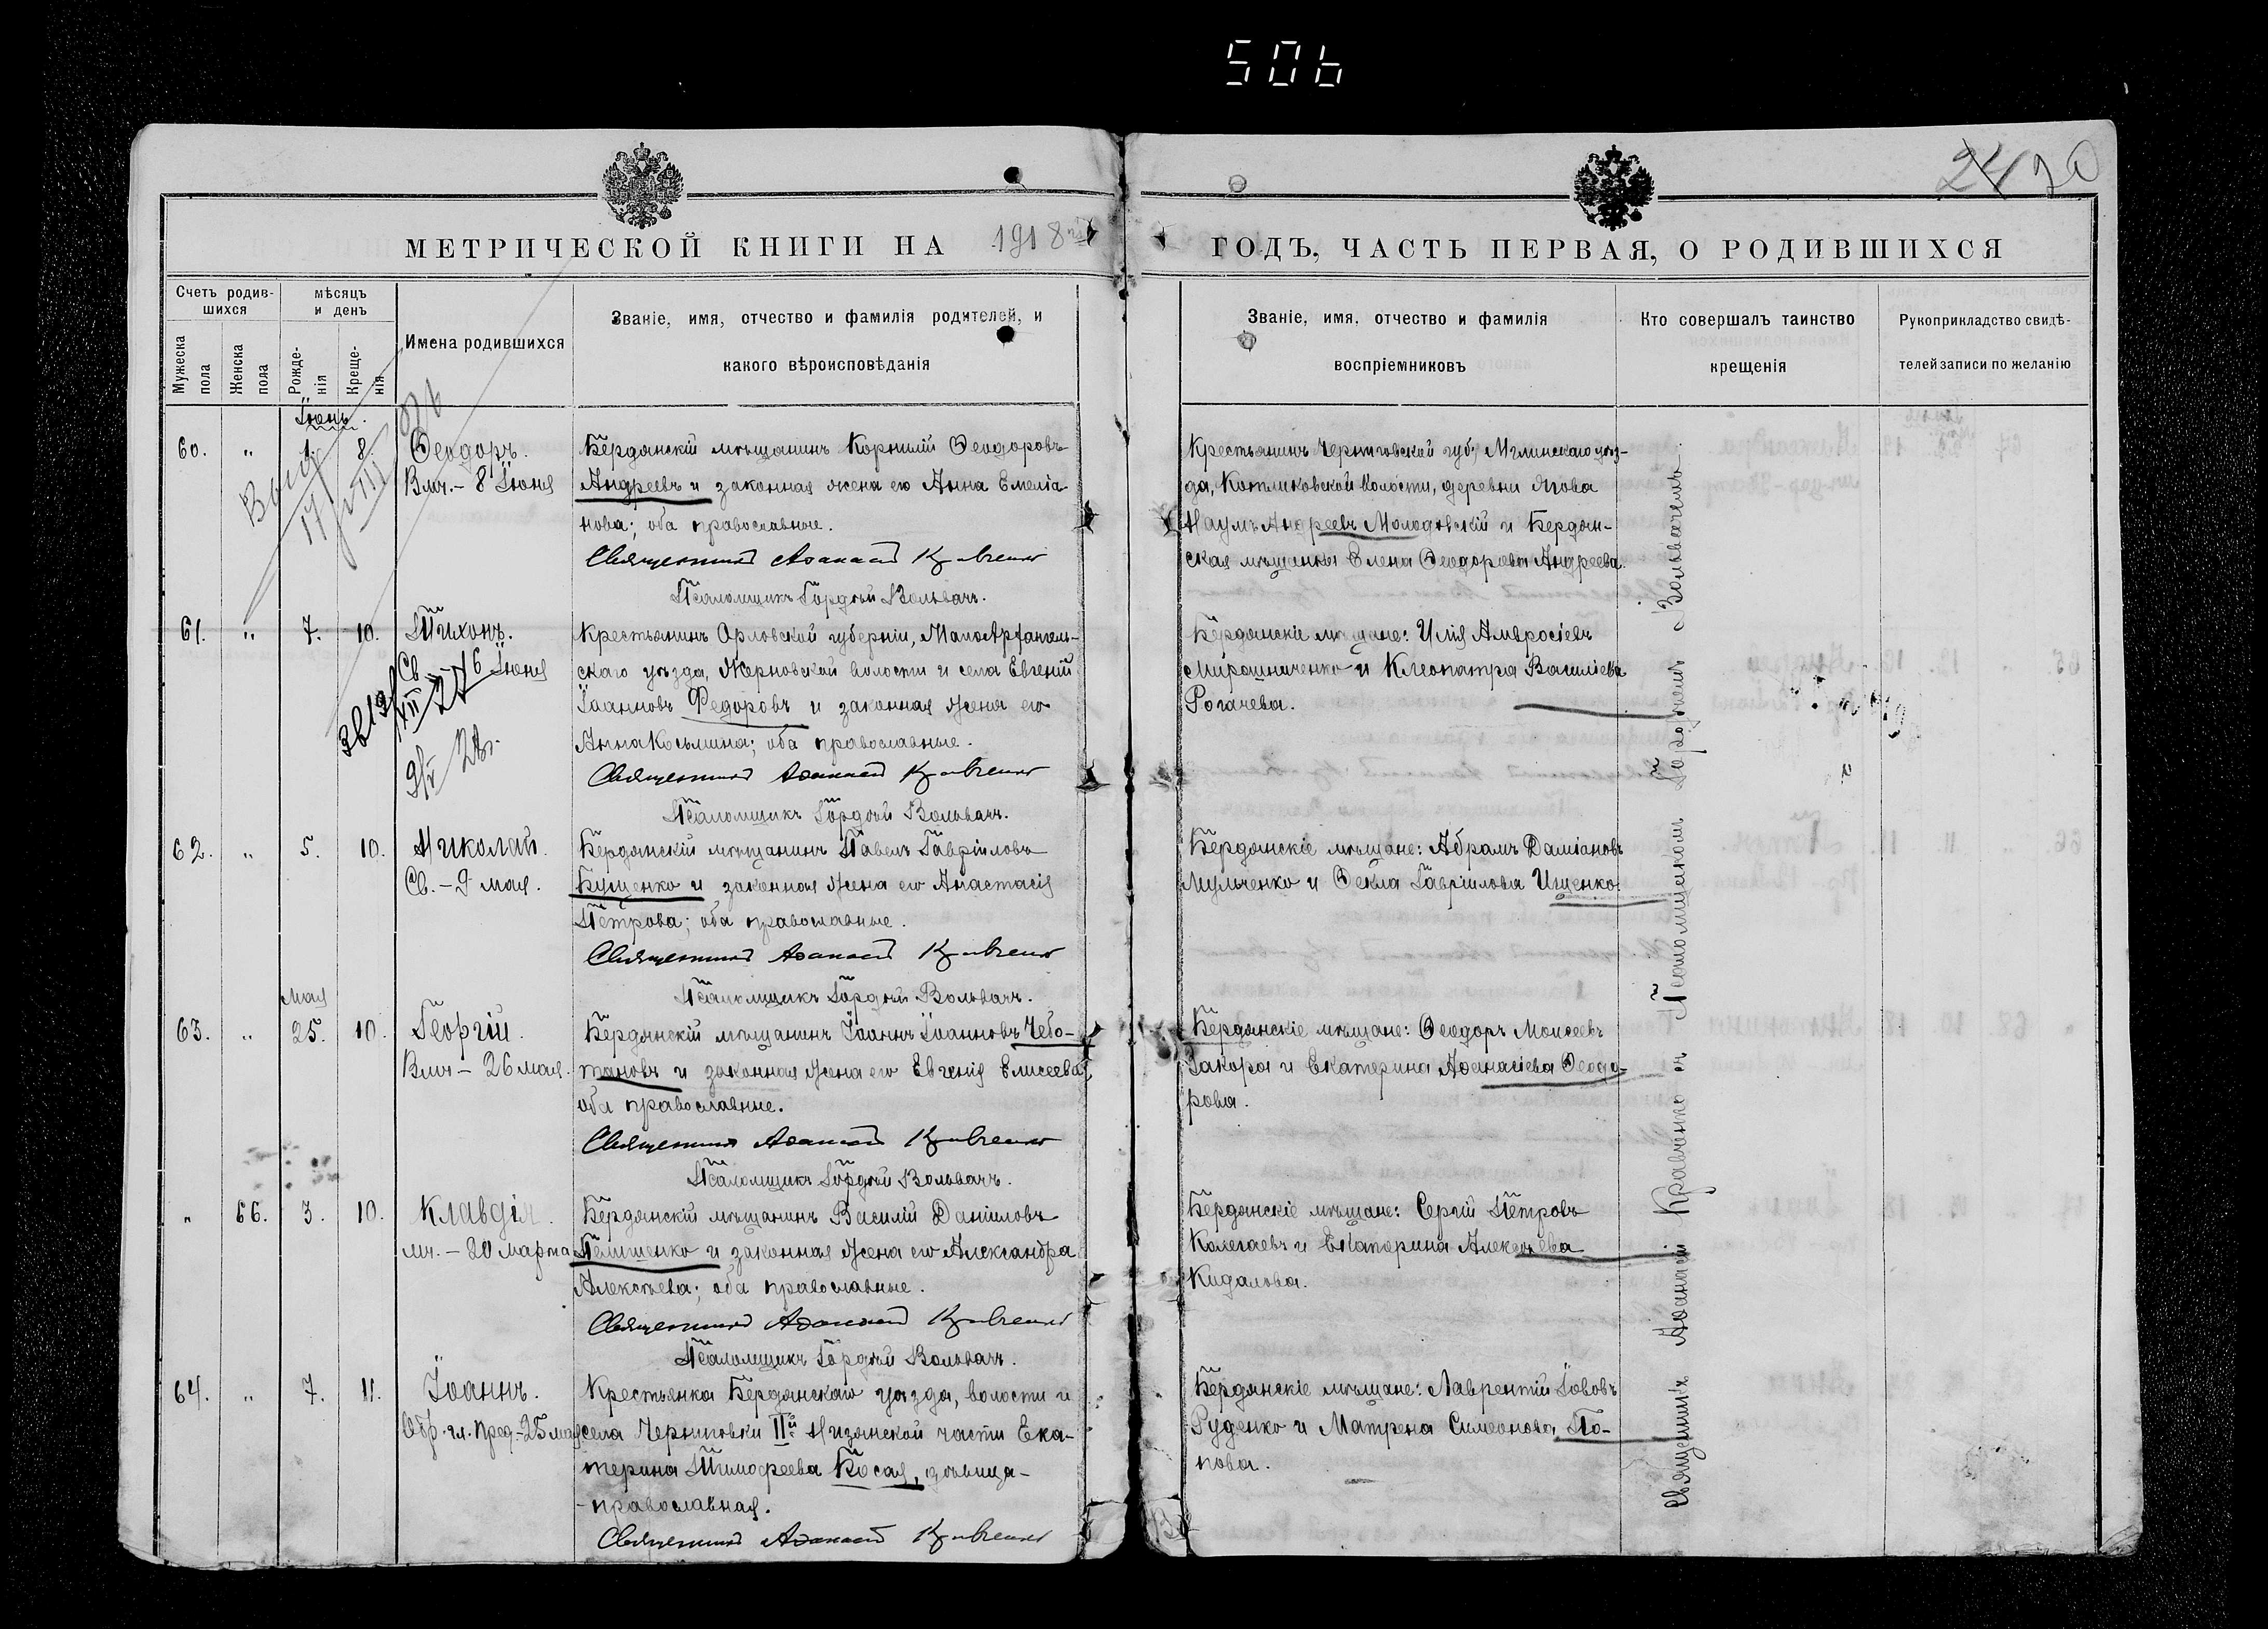 506
24 20
МЕТРИЧЕСКОЙ КНИГИ НА 1918 ГОДЪ, ЧАСТЬ ПЕРВАЯ, О РОДИВШИХСЯ
Счетъ родив-
шихся
Мужеска
пола
Женска
пола
мѣсяцъ
и день
Рожде-
нія
Креще-
нія
Имена родившихся
Званіе, имя, отчество и фамилія родителей, и
какого вѣроисповѣданія
Званіе, имя, отчество и фамилія
воспріемниковъ
Кто совершалъ таинство
крещенія
Рукоприкладство свидѣ-
телей записи по желанію
Іюнь.
60. " 1. 8. Ѳеодоръ.
Вмч. - 8 Іюня
Бердянскій мѣщанинъ Корнилій Ѳеодоровъ
Андреевъ и законная жена его Анна Емеліа-
нова; оба православные.
Священникъ Аѳанасій Кравченко
Псаломщикъ Гордѣй Вользачъ.
Крестьянинъ Черниговской губ., Мглинскаго уѣз-
да, Котляковской волости, деревни Ягова
Наумъ Андреевъ Молодовскій и Бердян-
ская мѣщанка Елена Ѳеодорова Андреева.
61. " 7. 10. Тихонъ.
Св. - 16 Іюня
Крестьянинъ Орловской губерніи, Малоархангель-
скаго уѣзда, Жерновской волости и села Евгеній
Іоанновъ Федоровъ и законная жена его
Анна Косьмина; оба православные.
Священникъ Аѳанасій Кравченко
Псаломщикъ Гордѣй Вользачъ.
Бердянскіе мѣщане: Илія Амвросіевъ
Мирошниченко и Клеопатра Василіева
Рогачева.
62. " 5. 10. Николай.
Св. - 9 мая.
Бердянскій мѣщанинъ Павелъ Гавріиловъ
Куценко и законная жена его Анастасія
Петрова; оба православные.
Священникъ Аѳанасій Кравченко
Псаломщикъ Гордѣй Вользачъ.
Бердянскіе мѣщане: Абрамъ Даміановъ
Мульченко и Ѳекла Гавріилова Ищенко.
мая
63. " 25. 10. Георгій.
Вмч - 26 мая.
Бердянскій мѣщанинъ Іоаннъ Іоанновъ Чебо-
тановъ и законная жена его Евгенія Елисеева;
оба православные.
Священникъ Аѳанасій Кравченко
Псаломщикъ Гордѣй Вользачъ.
Бердянскіе мѣщане: Ѳеодоръ Моисеевъ
Закора и Екатерина Аѳанасіева Ѳеодо-
рова.
" 66. 3. 10. Клавдія.
мч. - 20 марта
Бердянскій мѣщанинъ Василій Даніиловъ
Пелишенко и законная жена его Александра
Алексѣева; оба православные.
Священникъ Аѳанасій Кравченко
Псаломщикъ Гордѣй Вользачъ.
Бердянскіе мѣщане: Сергій Петровъ
Калегаевъ и Екатерина Алексѣева
Кидалова.
64. " 7. 11. Іоаннъ.
Обр. гл. Пред. - 25 мая
Крестьянка Бердянскаго уѣзда, волости и
села Черниговки IIй Низянской части Ека-
терина Тимоѳеева Косая, дѣвица -
- православная.
Священникъ Аѳанасій Кравченко
Бердянскіе мѣщане: Лаврентій Іововъ
Руденко и Матрена Симеонова По-
пова.
Священникъ Аѳанасій Кравченко съ Псаломщикомъ Гордѣемъ Вользачемъ.